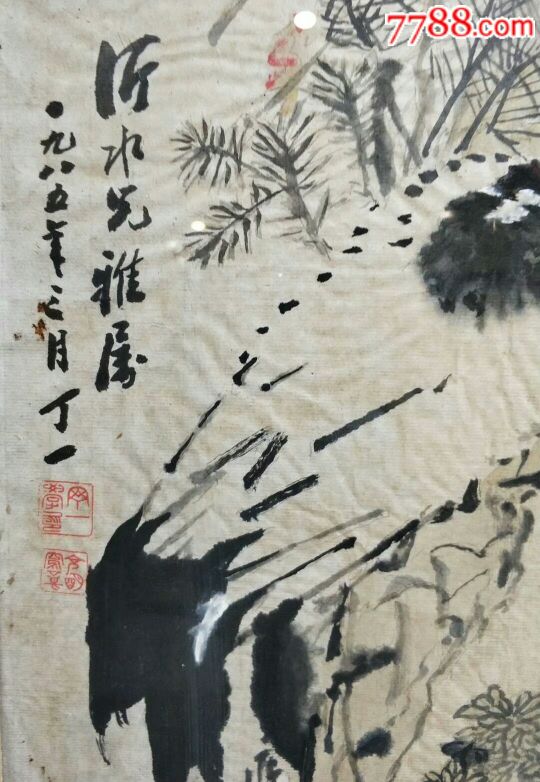 7788.com
沂水兄雅属
一九八五年三月丁一